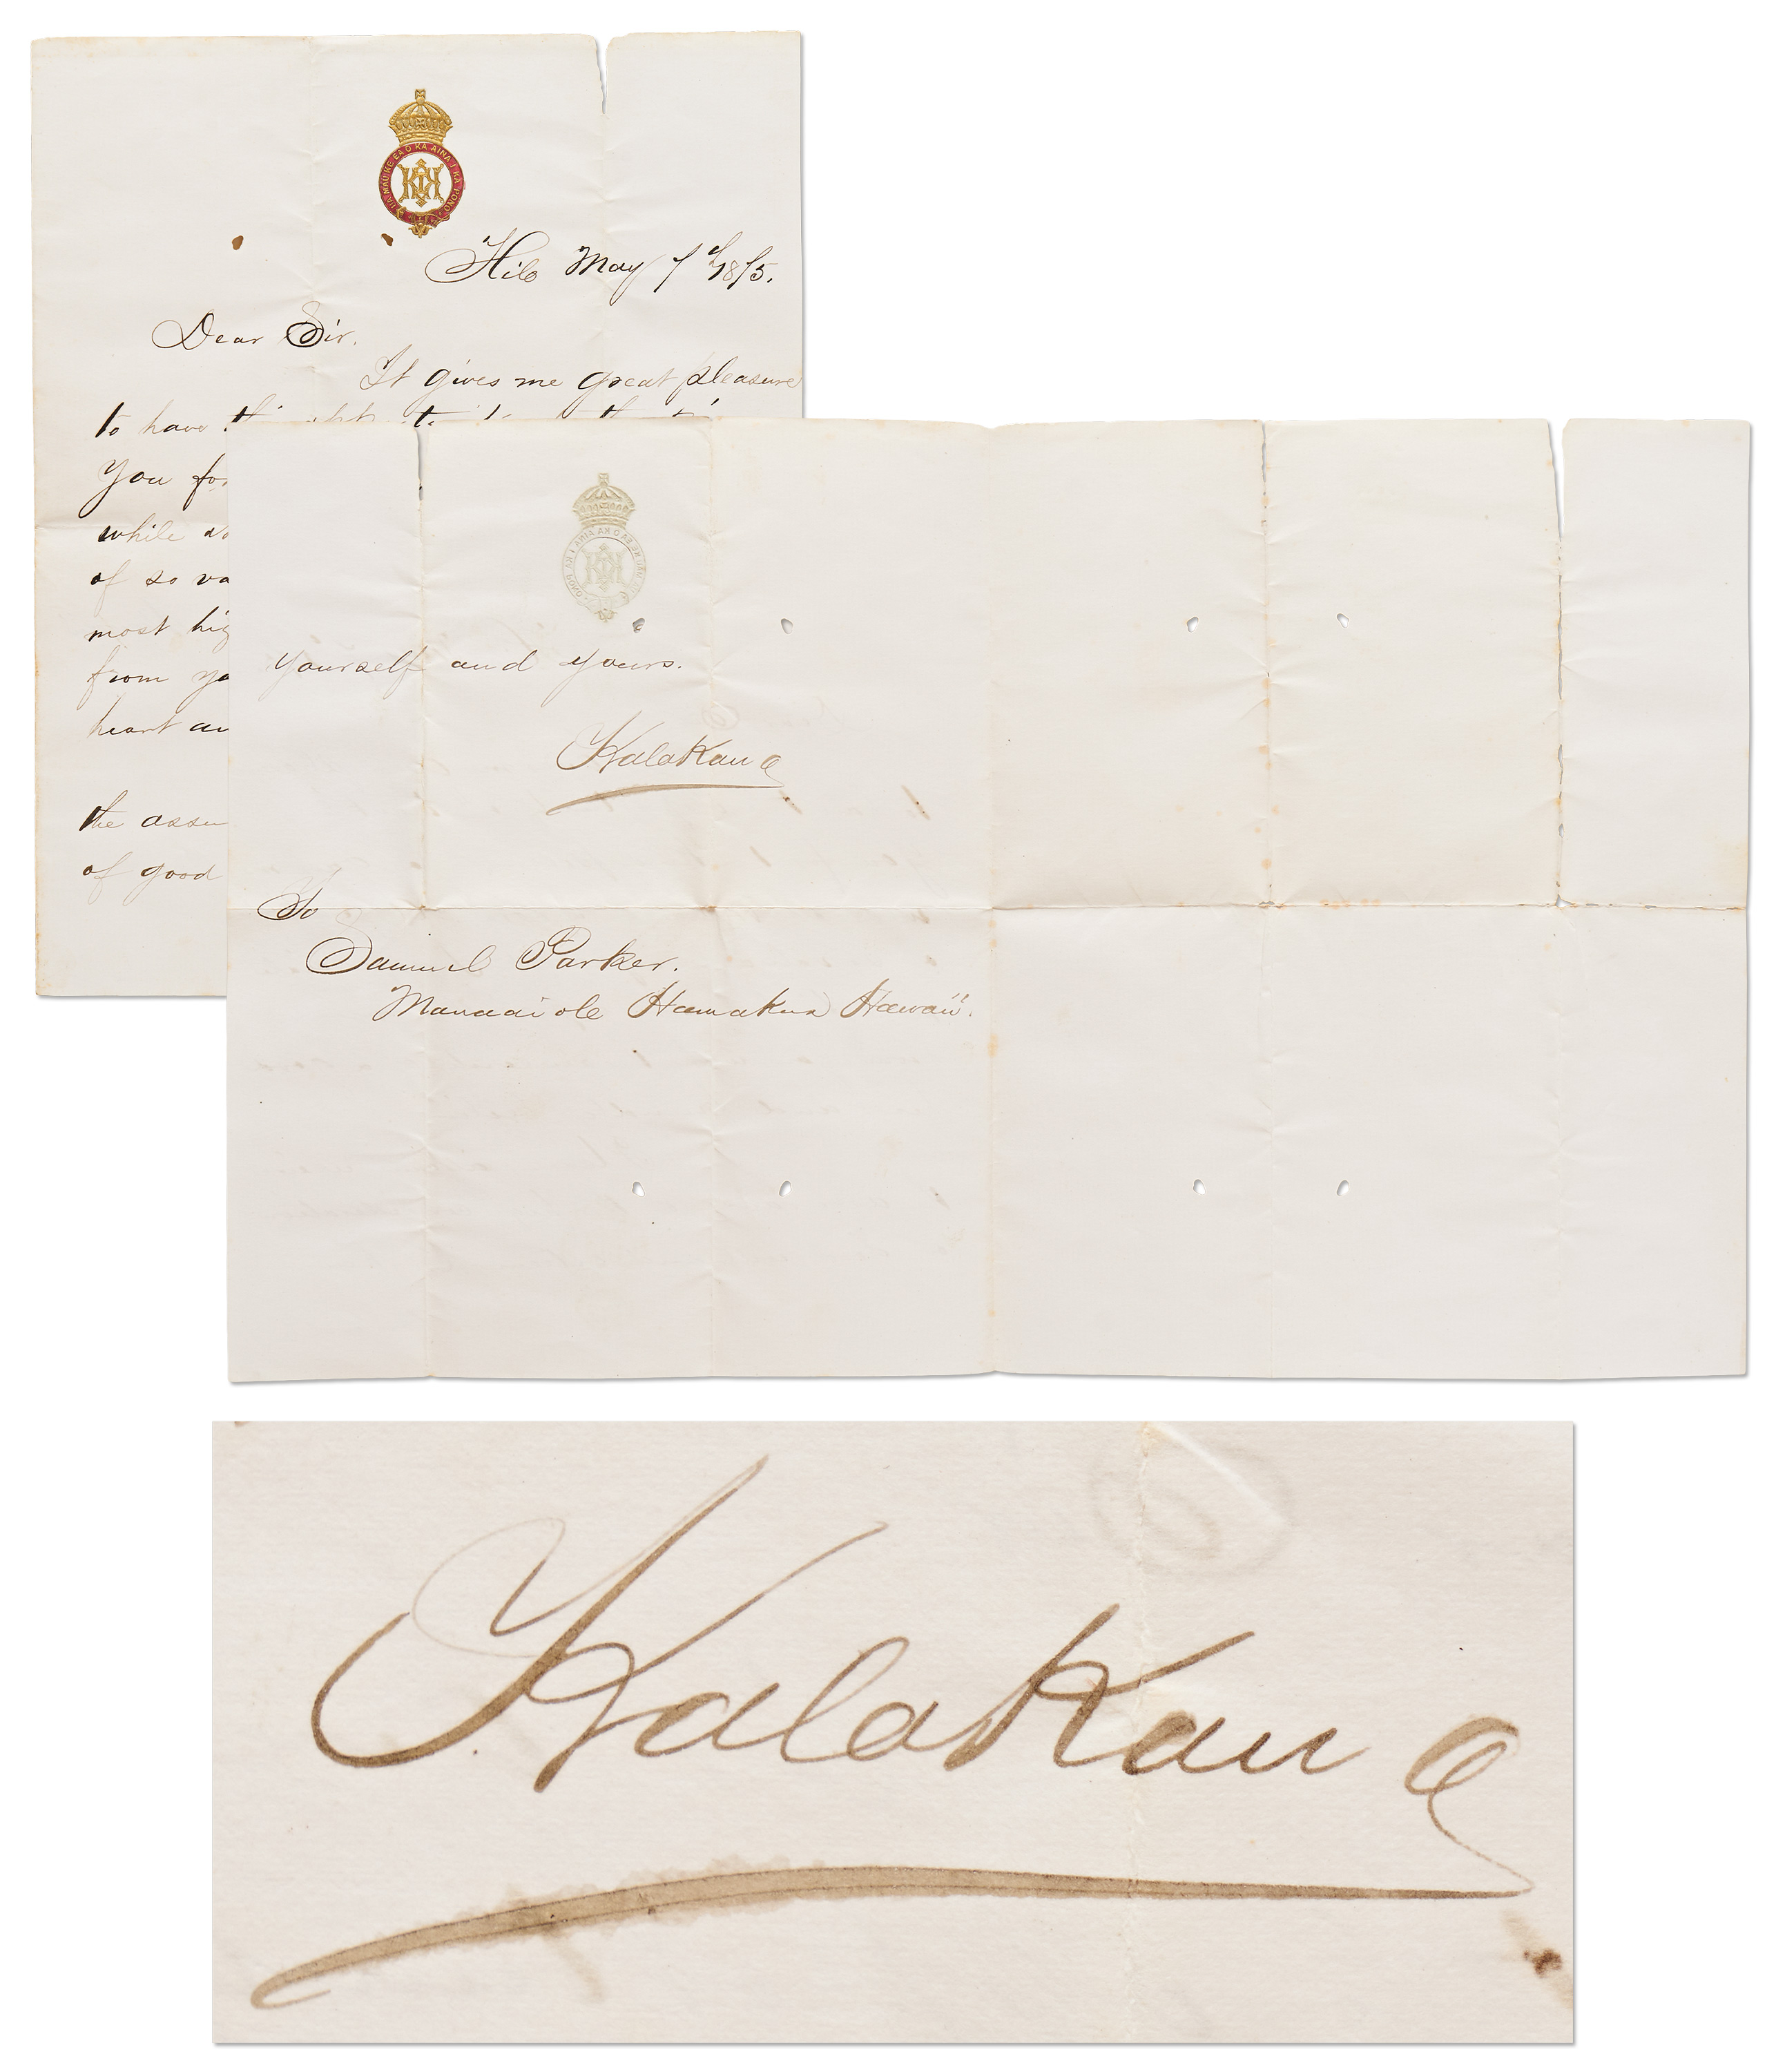 UA MAU KE EA O KA AINA I KA PONO
Hilo May 7th 1875.
Dear Sir.
It gives me great pleasure
to have
you
while
of so
most
from
heart
the
of good
yourself and yours.
Kalakaua
To
Samuel Parker.
Manaaiole Hamakua Hawaii.
Kalakaua